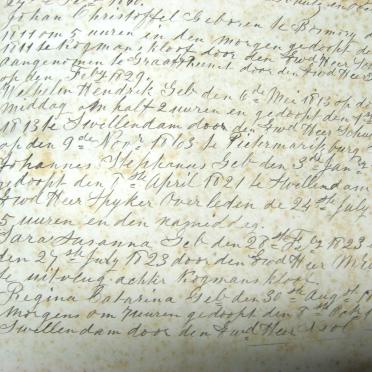 Johan Christoffel Geboren te Bosmory d
1811 om 5 uuren in den morgen gedoopt de
1811 te Kogmans kloof door den Ewd Heer
aangenomen te Graaffrinet door den Ewd Heer
op den Feby 1829.
Wilhelm Hendrik Geb den 6de Mei 1813 op de
middag om half 2 uuren en gedoopt den
1813 te Swellendam door den Ewd Heer Schu
op den 9de Novr 1863 te Pietermaritzburg
Johannes Stephanus Geb den 3de Jany
gedoopt den 7ste April 1821 te Swellendam
Ewd Heer Spyker overleden de 24ste July
5 uuren in den nagmiddag.
Sara Susanna Geb den 28ste Feby 1823 e
den 27ste July 1823 door den Ewd Heer
te uitvlug achter Kogmans kloof
Regina Catarina Geb den 30ste Augst
Morgens om 7 uuren gedoopt den
Swellendam door den Ewd Heer